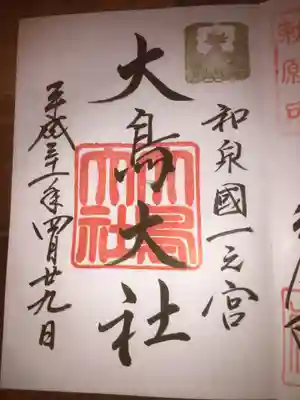 和泉國一之宮
大鳥大社
大鳥大社
平成三十一年四月廿九日